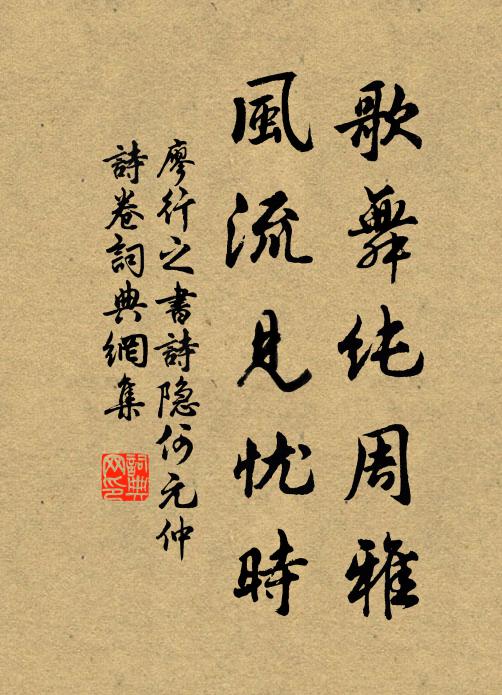 歌舞纯周雅
風流見忧時
廖行之書詩隐何元仲
詩卷詞典網集
詞典
网印